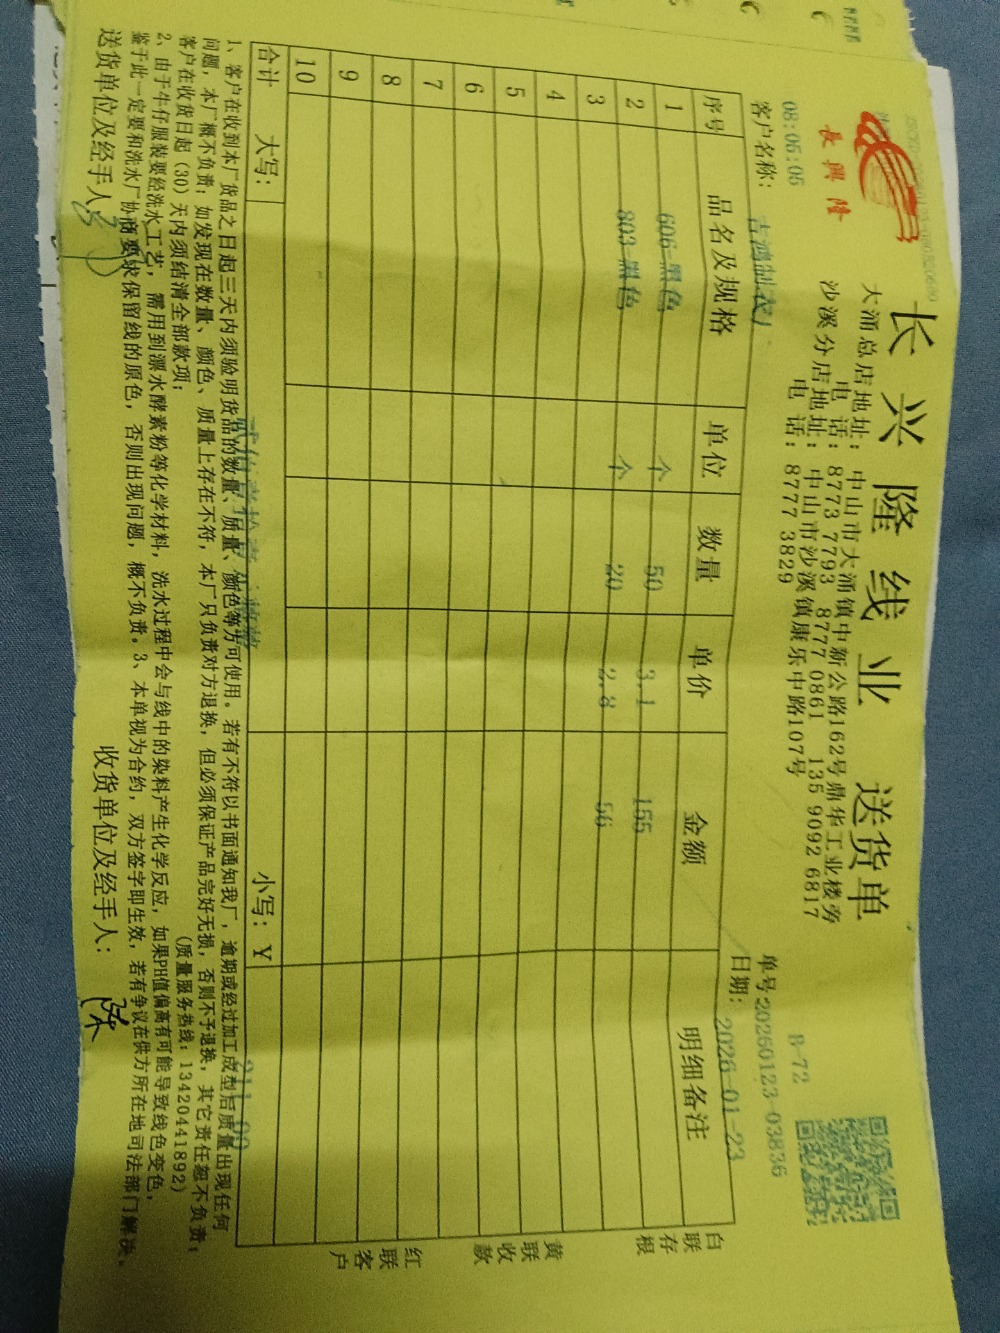 长兴隆线业 送货单
長興隆
大涌总店地址：中山市大涌镇中新公路162号鼎华工业楼旁
电 话：8773 7793 8777 0861 135 9092 6817
沙溪分店地址：中山市沙溪镇康乐中路107号
电 话：8777 3829
B-72
08:05:05
单号:20260123-03836
客户名称：吉鸿制衣厂
日期：2026-01-23
序号 品名及规格 单位 数量 单价 金额 明细备注
1 606-黑色 个 50 3.1 155
2 803-黑色 个 20 2.8 56
3
4
5
6
7
8
9
10
合计 大写： 小写：Y 211.00
白联存根
黄联收款
红联客户
1、客户在收到本厂货品之日起三天内须验明货品的数量、质量、颜色等方可使用。若有不符以书面通知我厂，逾期或经过加工成型后质量出现任何
问题，本厂概不负责；如发现在数量、颜色、质量上存在不符，本厂只负责对方退换，但必须保证产品完好无损，否则不予退换，其它责任恕不负责；
客户在收货日起（30）天内须结清全部款项；（质量服务热线：13420441892）
2、由于牛仔服装要经洗水工艺，需用到漂水酵素粉等化学材料，洗水过程中会与线中的染料产生化学反应，如果PH值偏高有可能导致线色变色，
鉴于此一定要和洗水厂协商要求保留线的原色，否则出现问题，概不负责。3、本单视为合约，双方签字即生效，若有争议在供方所在地司法部门解决。
送货单位及经手人： 收货单位及经手人：